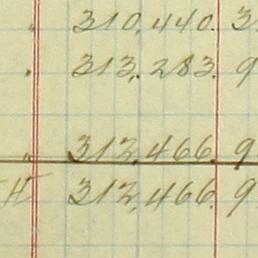 " 310,440. 3
" 313,283. 9
" 313,466. 9
H 313,466. 9